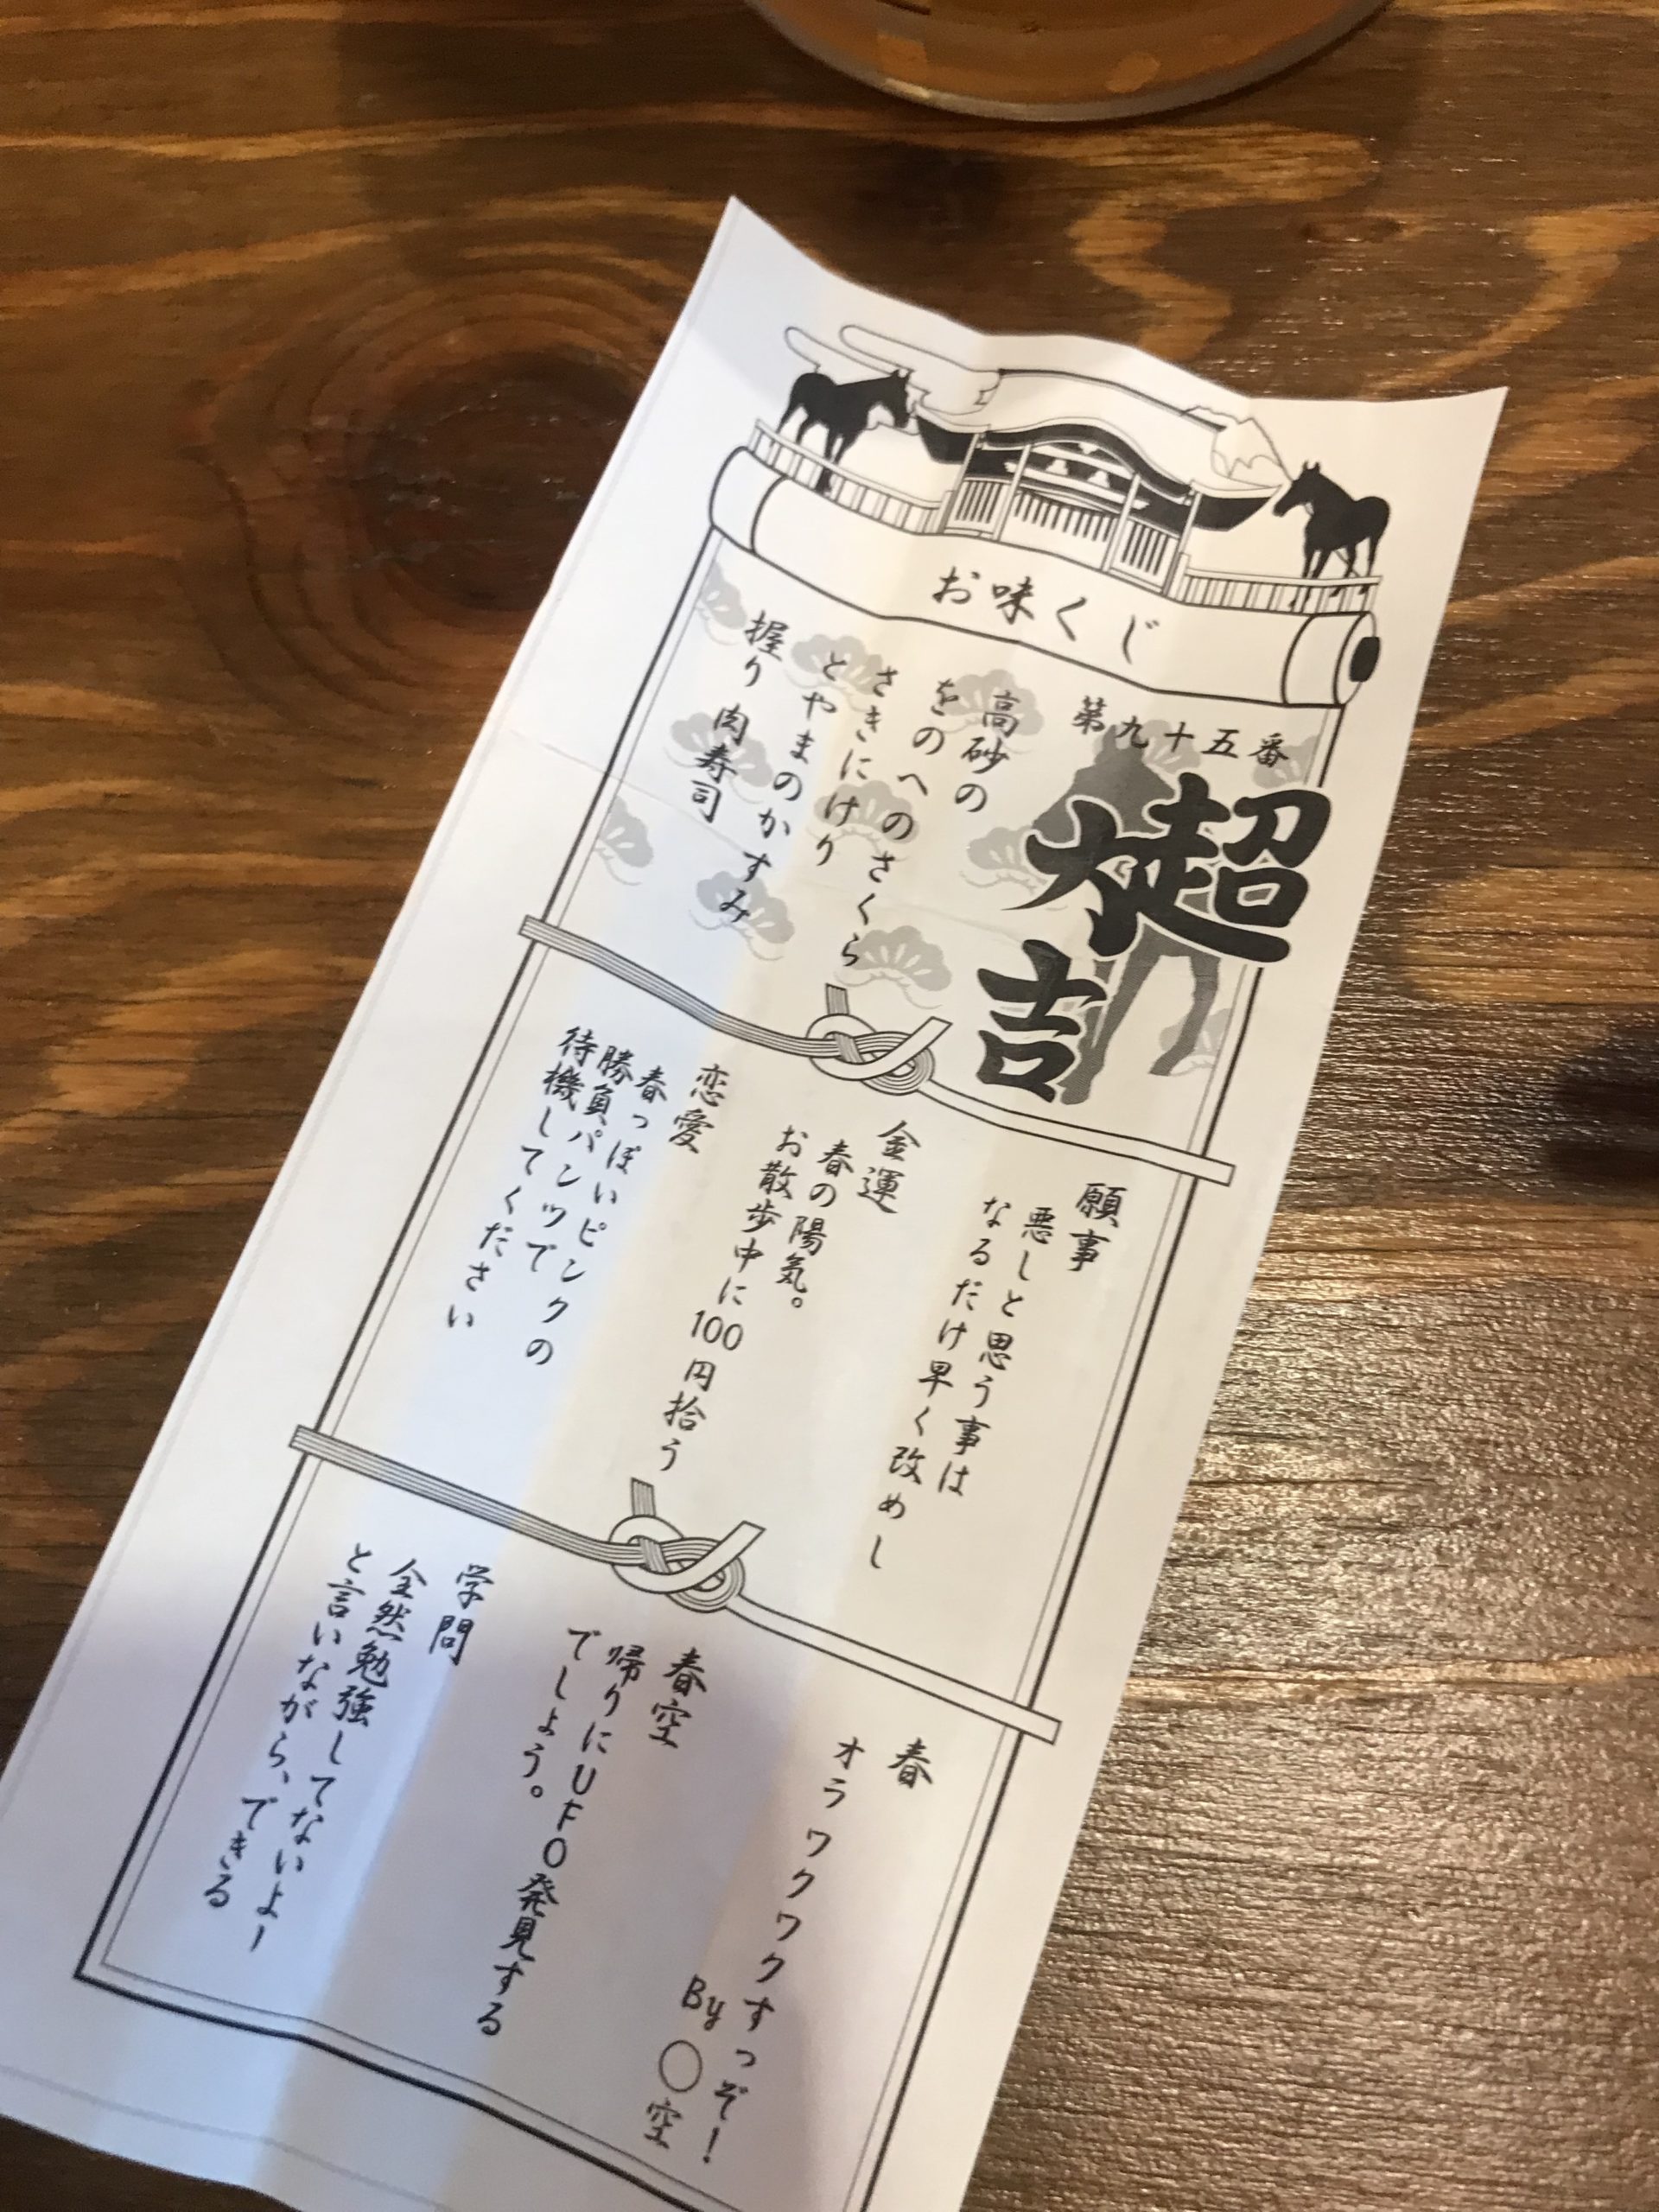 お味くじ
第九十五番
超大吉
高砂の
をのへのさくら
さきにけり
とやまのかすみ
握り肉寿司
願事
悪しと思う事は
なるだけ早く改めし
金運
春の陽気。
お散歩中に100円拾う
恋愛
春っぽいピンクの
勝負パンツで
待機してください
春
オラワクワクすっぞ！
By〇空
春空
帰りにUFO発見する
でしょう。
学問
全然勉強してないよー
と言いながら、できる